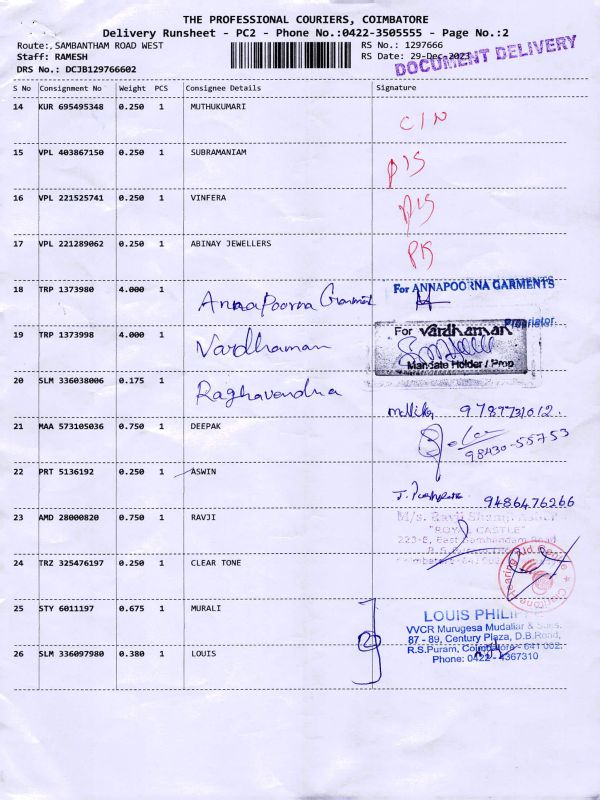 THE PROFESSIONAL COURIERS, COIMBATORE
Delivery Runsheet - PC2 - Phone No.:0422-3505555 - Page No.:2
Route:,SAMBANTHAM ROAD WEST RS No.: 1297666
Staff: RAMESH RS Date: 29-Dec-2023
DOCUMENT DELIVERY
DRS No.: DCJB129766602
S No Consignment No Weight PCS Consignee Details Signature
14 KUR 695495348 0.250 1 MUTHUKUMARI
15 VPL 403867150 0.250 1 SUBRAMANIAM
16 VPL 221525741 0.250 1 VINFERA
17 VPL 221289062 0.250 1 ABINAY JEWELLERS
18 TRP 1373980 4.000 1 Annapoorna For ANNAPOORNA GARMENTS
Proprietor.
19 TRP 1373998 4.000 1 Vardhaman For vardhaman
Mandate Holder / Prop
20 SLM 336038006 0.175 1 Raghavendra
9787731012.
21 MAA 573105036 0.750 1 DEEPAK
98430-55753
22 PRT 5136192 0.250 1 ASWIN
9486476266
23 AMD 28000820 0.750 1 RAVJI M/s. Ravji
"ROYAL CASTLE"
223-E, East Sambandam Road
24 TRZ 325476197 0.250 1 CLEAR TONE
25 STY 6011197 0.675 1 MURALI LOUIS PHILIPPE
VVCR Murugesa Mudaliar & Sons.
87 - 89, Century Plaza, D.B.Road,
26 SLM 336097980 0.380 1 LOUIS R.S.Puram, Coimbatore - 641 002.
Phone: 0422 - 4367310